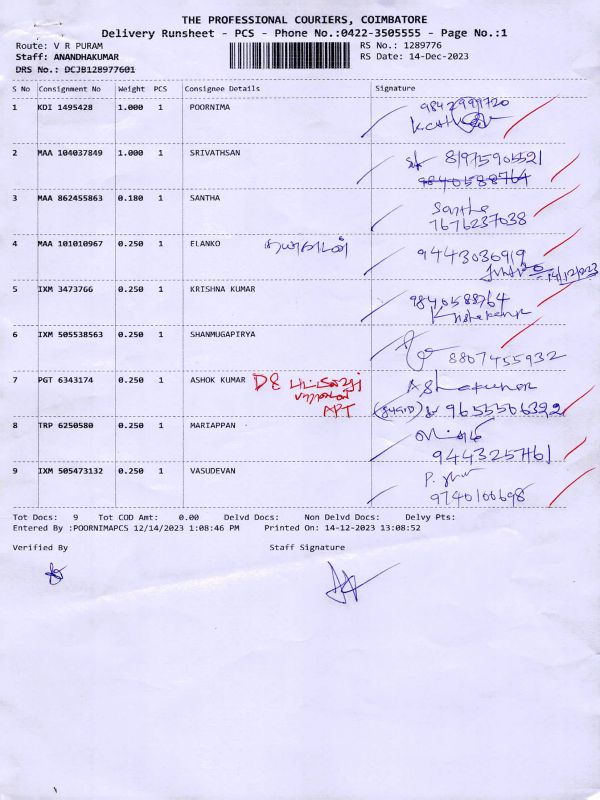 THE PROFESSIONAL COURIERS, COIMBATORE
Delivery Runsheet - PCS - Phone No.:0422-3505555 - Page No.:1
Route: V R PURAM
RS No.: 1289776
Staff: ANANDHAKUMAR
RS Date: 14-Dec-2023
DRS No.: DCJB128977601
S No Consignment No Weight PCS Consignee Details Signature
1 KDI 1495428 1.000 1 POORNIMA 9842999720
2 MAA 104037849 1.000 1 SRIVATHSAN 81975905521
9840588764
3 MAA 862455863 0.180 1 SANTHA Santha
7676237038
4 MAA 101010967 0.250 1 ELANKO 9443036919
14/12/023
5 IXM 3473766 0.250 1 KRISHNA KUMAR 9840588764
6 IXM 505538563 0.250 1 SHANMUGAPIRYA 8807455932
7 PGT 6343174 0.250 1 ASHOK KUMAR D8 APT Ashokumar
9655506392
8 TRP 6250580 0.250 1 MARIAPPAN
9443257161
9 IXM 505473132 0.250 1 VASUDEVAN
9740100698
Tot Docs: 9 Tot COD Amt: 0.00 Delvd Docs: Non Delvd Docs: Delvy Pts:
Entered By :POORNIMAPCS 12/14/2023 1:08:46 PM Printed On: 14-12-2023 13:08:52
Verified By Staff Signature